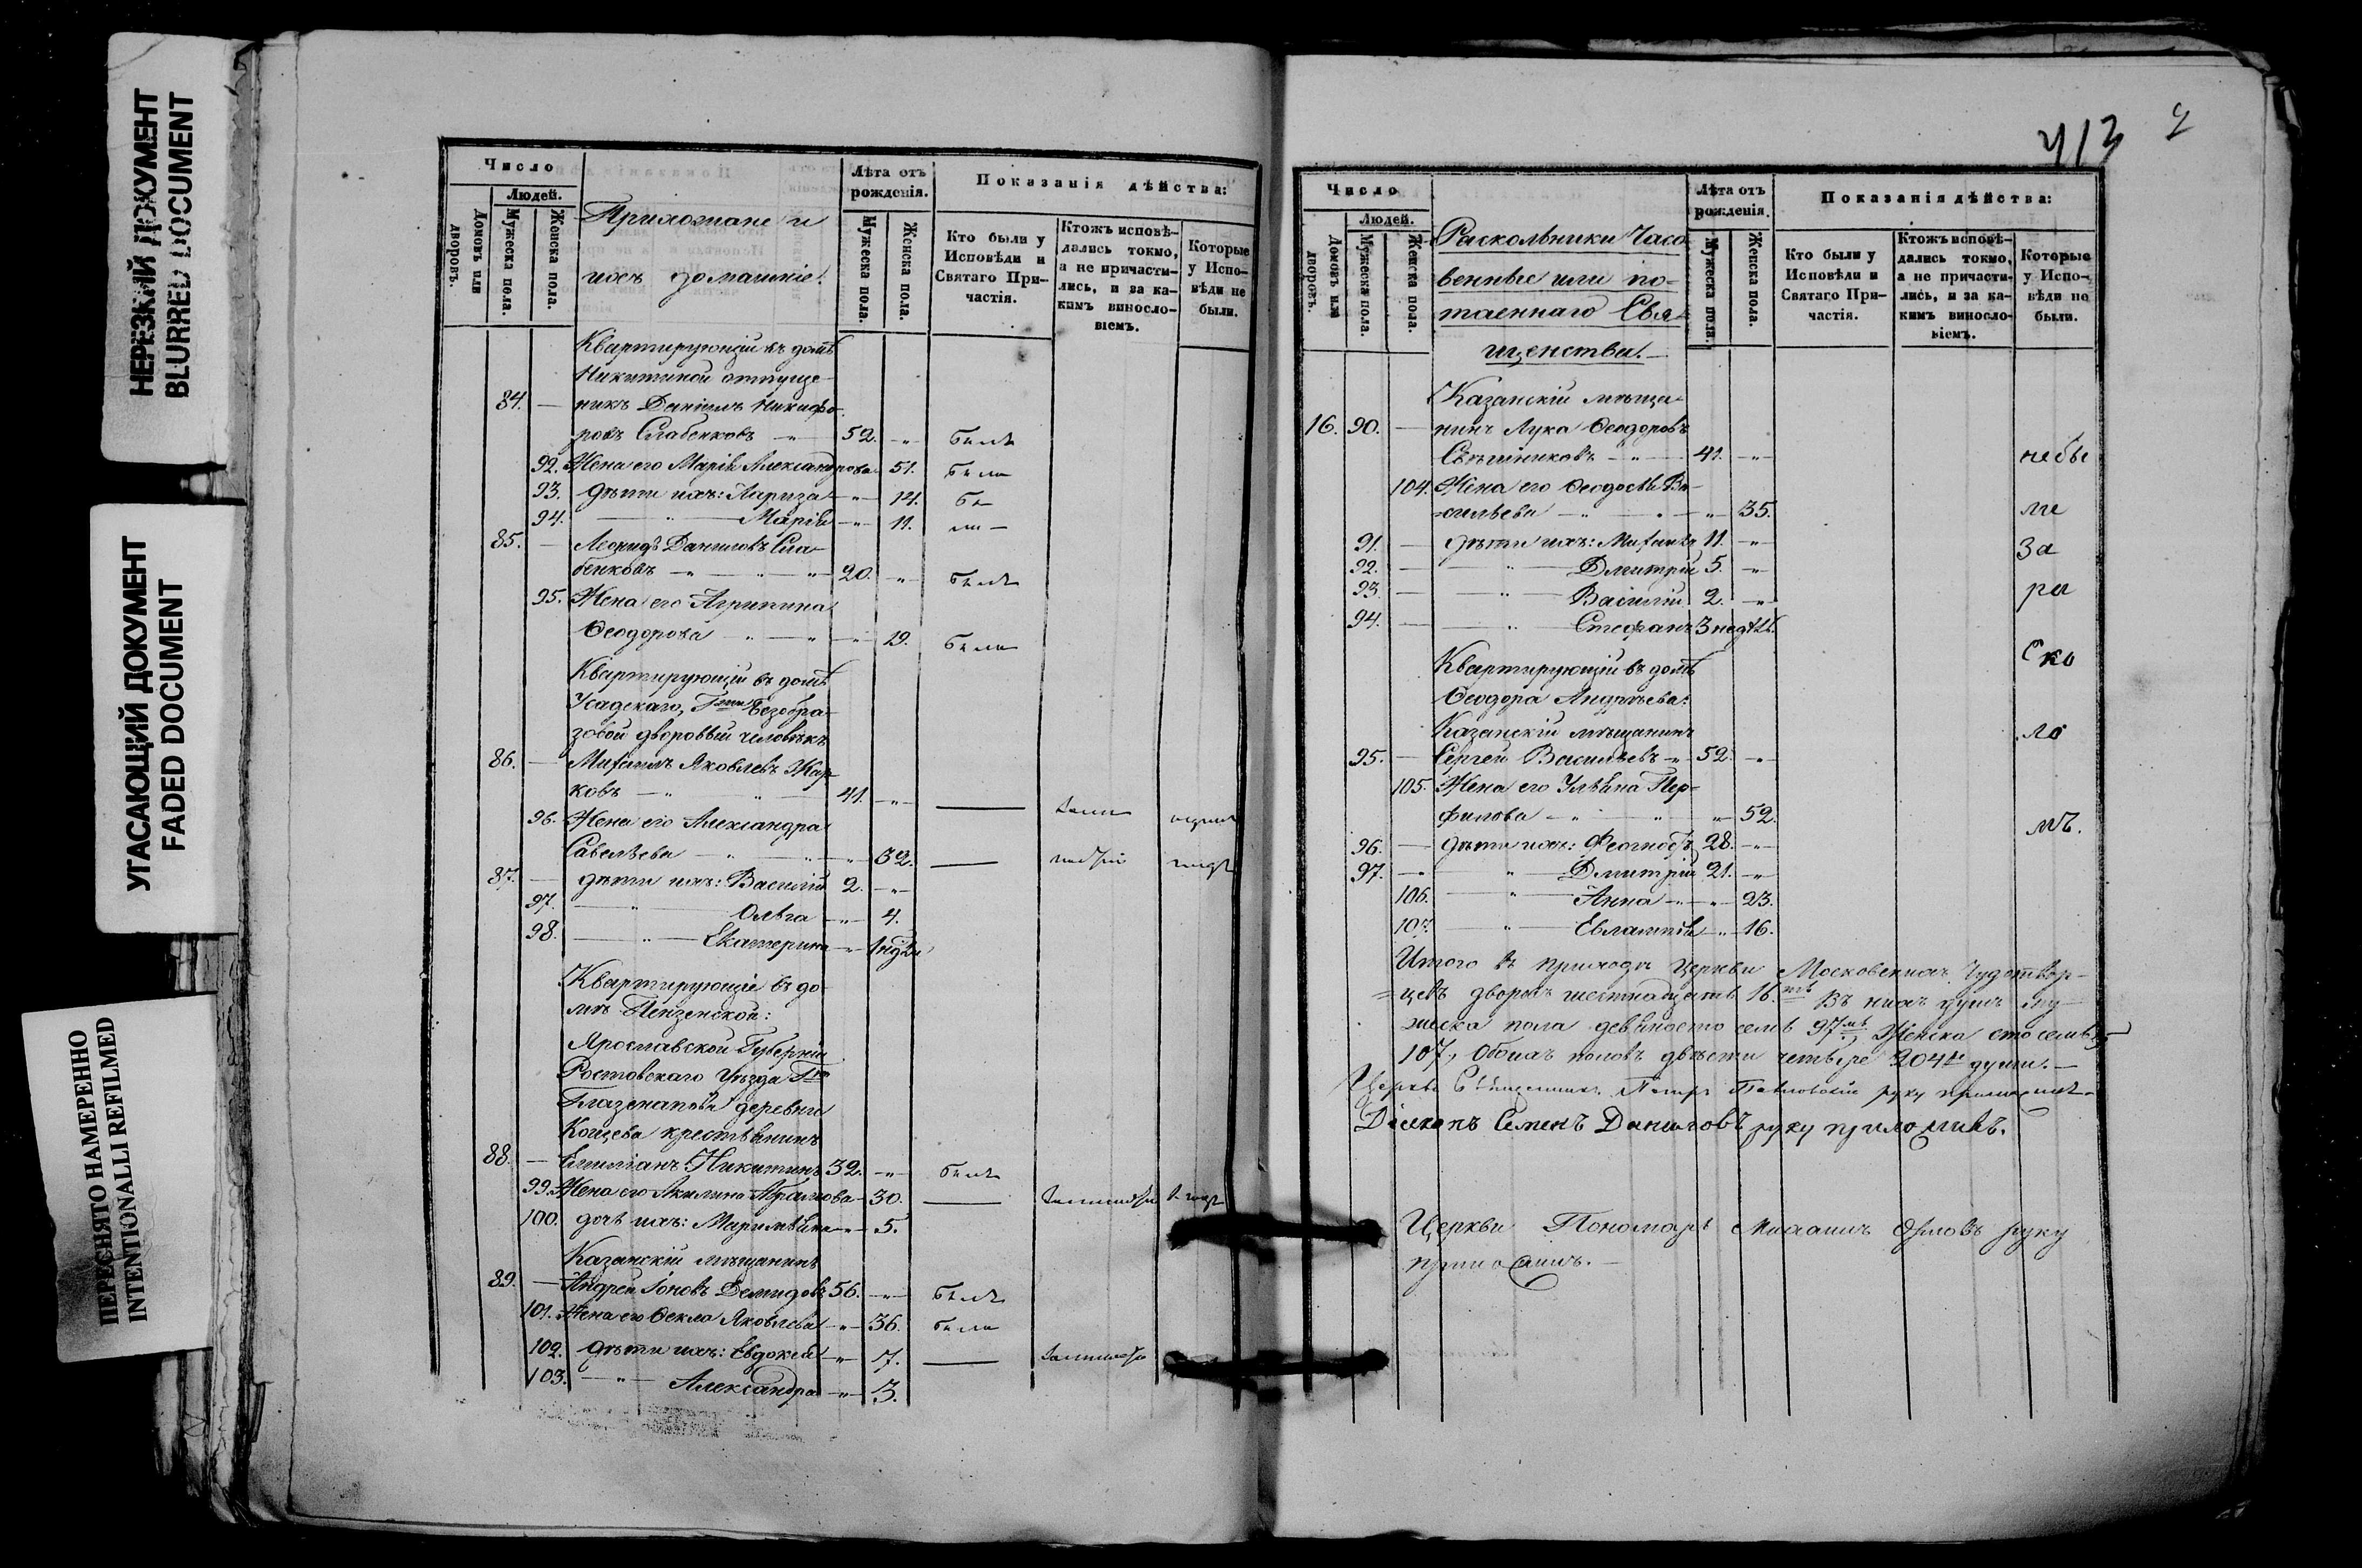 НЕРЕЗКИЙ ДОКУМЕНТ
BLURRED DOCUMENT
УГАСАЮЩИЙ ДОКУМЕНТ
FADED DOCUMENT
ПЕРЕСНЯТО НАМЕРЕННО
INTENTIONALLI REFILMED
Число
Людей.
Домовъ или дворовъ.
Мужеска пола.
Женска пола.
Прихожане и
ихъ домашніе.
Лѣта отъ рожденія.
Мужеска пола.
Женска пола.
Показанія дѣйства:
Кто были у Исповѣди и Святаго Причастія.
Ктожъ исповѣдались токмо, а не причастились, и за какимъ винословіемъ.
Которые у Исповѣди не были.
Квартирующій въ домѣ
Никитиной отпуще-
84. — никъ Даніилъ Никифо-
ровъ Слабенковъ — 52. — былъ
92. Жена его Марія Александрова 51. была
93. Дѣти ихъ: Лариза — 14. бы
94. — Марія — 11. ли —
85. — Леонидъ Даниловъ Сла-
бенковъ — 20. — былъ
95. Жена его Агрипина
Ѳеодорова — 19. была
Квартирующій въ домѣ
Усадскаго, Гжи Безобра-
зовой дворовый человѣкъ
86. — Михаилъ Яковлевъ Жар-
ковъ — 41. —
96. Жена его Александра
Савельева — 32. —
87. — Дѣти ихъ: Василій 2. —
97. — Ольга — 4.
98. — Екатерина —
Квартирующіе въ до-
мѣ Пензенской:
Ярославской Губерніи
Ростовскаго Уѣзда
Глазенапова деревни
крестьянинъ
88. — Емиліанъ Никитинъ 32. — былъ
99. Жена его Акилина Абрамова 30. —
100. дочь ихъ: — 5.
Казанскій мѣщанинъ
89. — Андрей Іоновъ Демидовъ 56. — былъ
101. Жена его Ѳекла Яковлева — 36. была
102. Дѣти ихъ: Евдокія — 7. —
103. — Александра — 3.
413
Число
Людей.
Домовъ или дворовъ.
Мужеска пола.
Женска пола.
Раскольники Часо-
венные или по-
таеннаго Свя-
щенства.
Лѣта отъ рожденія.
Мужеска пола.
Женска пола.
Показанія дѣйства:
Кто были у Исповѣди и Святаго Причастія.
Ктожъ исповѣдались токмо, а не причастились, и за какимъ винословіемъ.
Которые у Исповѣди не были.
Казанскій мѣща-
16. 90. — нинъ Лука Ѳеодоровъ
Свѣшниковъ — 41. — небы
104. Жена его Ѳеодосья Ва-
сильева — 35. ли
91. — Дѣти ихъ: Михаилъ 11. — за
92. — Дмитрій 5. —
93. — Василій 2. — ра
94. — Стефанъ 3 недѣл.
ско
Квартирующій въ домѣ
Ѳеодора Андреева:
Казанскій мѣщанинъ ло
95. — Сергей Васильевъ — 52. —
105. Жена его Ульяна Пер-
филова — 52. мъ.
96. — Дѣти ихъ: 28. —
97. — Дмитрій 21. —
106. — Анна — 23.
107. — Евлампія — 16.
Итого въ приходѣ церкви Московскихъ Чудотвор-
цевъ дворовъ шестнадцать 16.ть Въ нихъ душъ му-
жеска пола девяносто семь 97мь, Женска сто семь
107, Обоихъ половъ двѣсти четыре 204ре души. —
Церкви Священникъ Петръ руку приложилъ.
Діаконъ Семенъ Даниловъ руку приложилъ.
Церкви Пономарь Михаилъ Орловъ руку
приложилъ. —